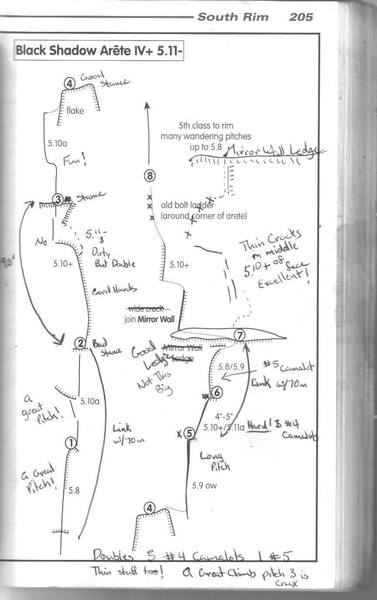 South Rim 205
Black Shadow Arête IV+ 5.11-
4 Good
Stance
flake
5.10a
Fun!
5th class to rim
many wandering pitches
up to 5.8
Mirror Wall Ledge
8
3 Stance
old bolt ladder
(around corner of arete)
No
5.11-
$
Dirty
But Double
5.10+
Good Hands
5.10+
Thin Cracks
in middle
5.10+ of face
Excellent!
wide crack
join Mirror Wall
2 Bad
Stance
Good
Ledge
Mirror Wall
Ledge
Not This
Big
7
5.8/5.9
#5
Camalot
Link w/70m
A
great
Pitch!
5.10a
6
Link
w/70m
4"-5"
5.10+/5.11a
Hard! 5 #4
Camalots
1
x 5
Long
Pitch
A Great
Pitch!
5.8
5.9 ow
4
Doubles 5 #4 Camalots 1 #5
Thin stuff too! A Great Climb pitch 3 is
crux